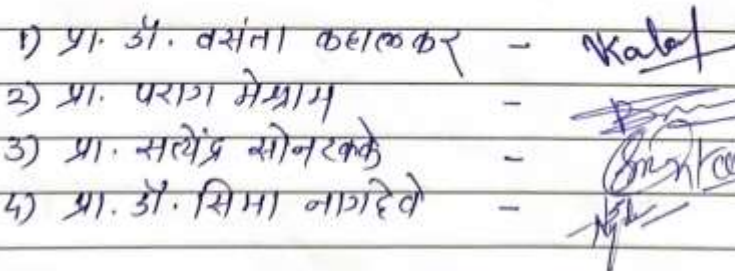 १) प्रा. डॉ. वसंता कहालकर -
२) प्रा. पराग मेश्राम -
३) प्रा. सत्येंद्र सोनटक्के -
४) प्रा. डॉ. सिमा नागदेवे -